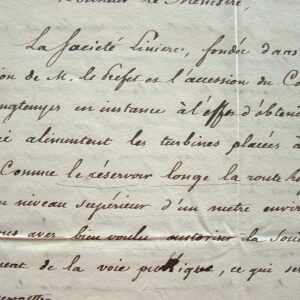 le Ministre,
La Société Linière, fondée dans
ion de M. le Préfet et l'accession du Co
ngtemps en instance à l'effet d'obten
i alimentent les turbines placées a
Comme le réservoir longe la route
un niveau supérieur d'un metre envir
ous avez bien voulu autoriser la Soci
ment de la voie publique, ce qui se